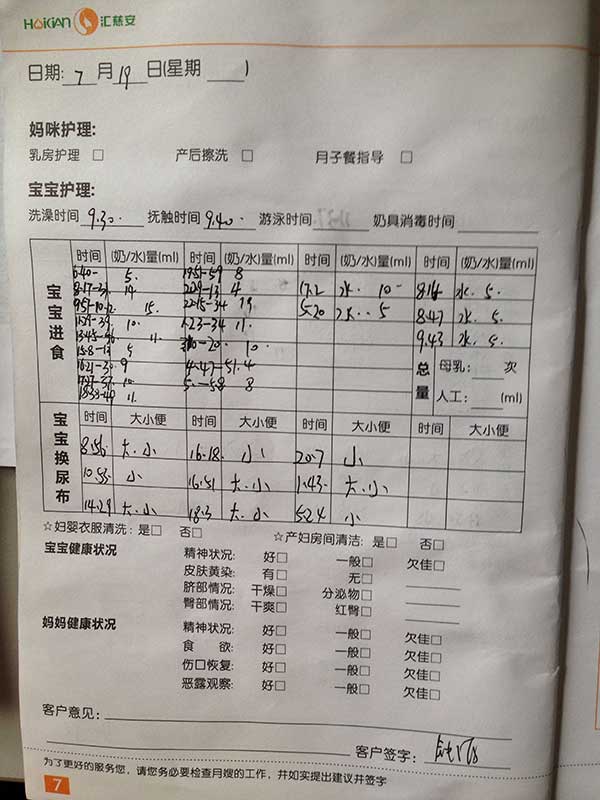 HAKIAN 汇慈安
日期: 7 月 19 日(星期 )
妈咪护理:
乳房护理 □ 产后擦洗 □ 月子餐指导 □
宝宝护理:
洗澡时间 9.30. 抚触时间 9.40. 游泳时间 奶具消毒时间
宝宝进食
时间 (奶/水)量(ml) 时间 (奶/水)量(ml) 时间 (奶/水)量(ml) 时间 (奶/水)量(ml)
6.40- 5. 8
4 17.2 水. 10- 8.14 水. 5.
15. 19 5.20 水.. 5 8.47 水. 5.
10. 1.23-34 11. 9.43 水. 5.
11. 10.
5
9 4.47-51. 4
10. 8
11.
总量 母乳: 次
人工: (ml)
宝宝换尿布
时间 大小便 时间 大小便 时间 大小便 时间 大小便
8.56 大.小 16.18. 小 20.7 小
10.53 小 16.51 大.小 1.43. 大.小
14.29 大.小 18.3 大.小 5.24 小
☆妇婴衣服清洗: 是□ 否□ ☆产妇房间清洁: 是□ 否□
宝宝健康状况 精神状况: 好□ 一般□ 欠佳□
皮肤黄染: 有□ 无□
脐部情况: 干燥□ 分泌物□
臀部情况: 干爽□ 红臀□
妈妈健康状况 精神状况: 好□ 一般□ 欠佳□
食 欲: 好□ 一般□ 欠佳□
伤口恢复: 好□ 一般□ 欠佳□
恶露观察: 好□ 一般□ 欠佳□
客户意见:
客户签字:
为了更好的服务您，请您务必要检查月嫂的工作，并如实提出建议并签字
7